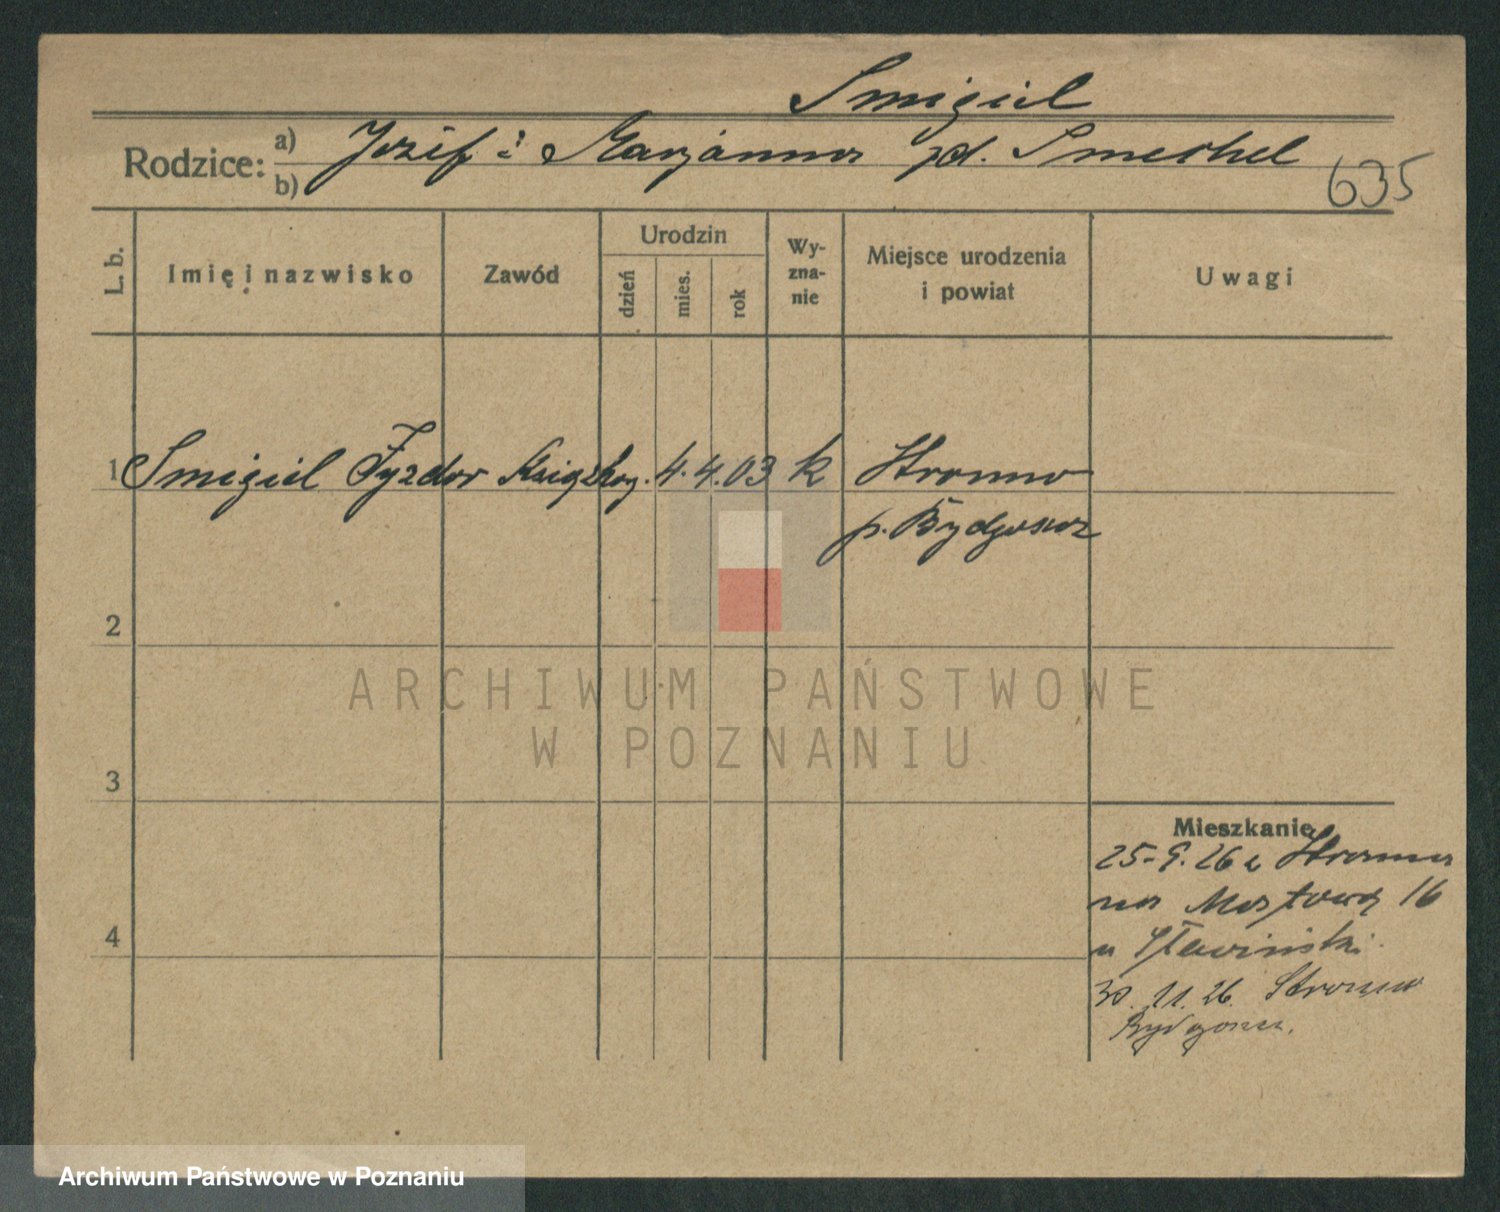 Smigiel
Rodzice: a) b) Józef i Maryanna zd. Smechel
635
L. b. Imię i nazwisko Zawód Urodzin dzień mies. rok Wy-zna-nie Miejsce urodzenia i powiat Uwagi
1 Smigiel Izydor Książkow. 4. 4. 03 k Stronno
p. Bydgoszcz
2
ARCHIWUM PAŃSTWOWE
W POZNANIU
3
Mieszkanie
25-9.26 z Stronna
na Mostową 16
4
u Sławiński
30.11.26. Stronno
Bydgoszcz.
Archiwum Państwowe w Poznaniu